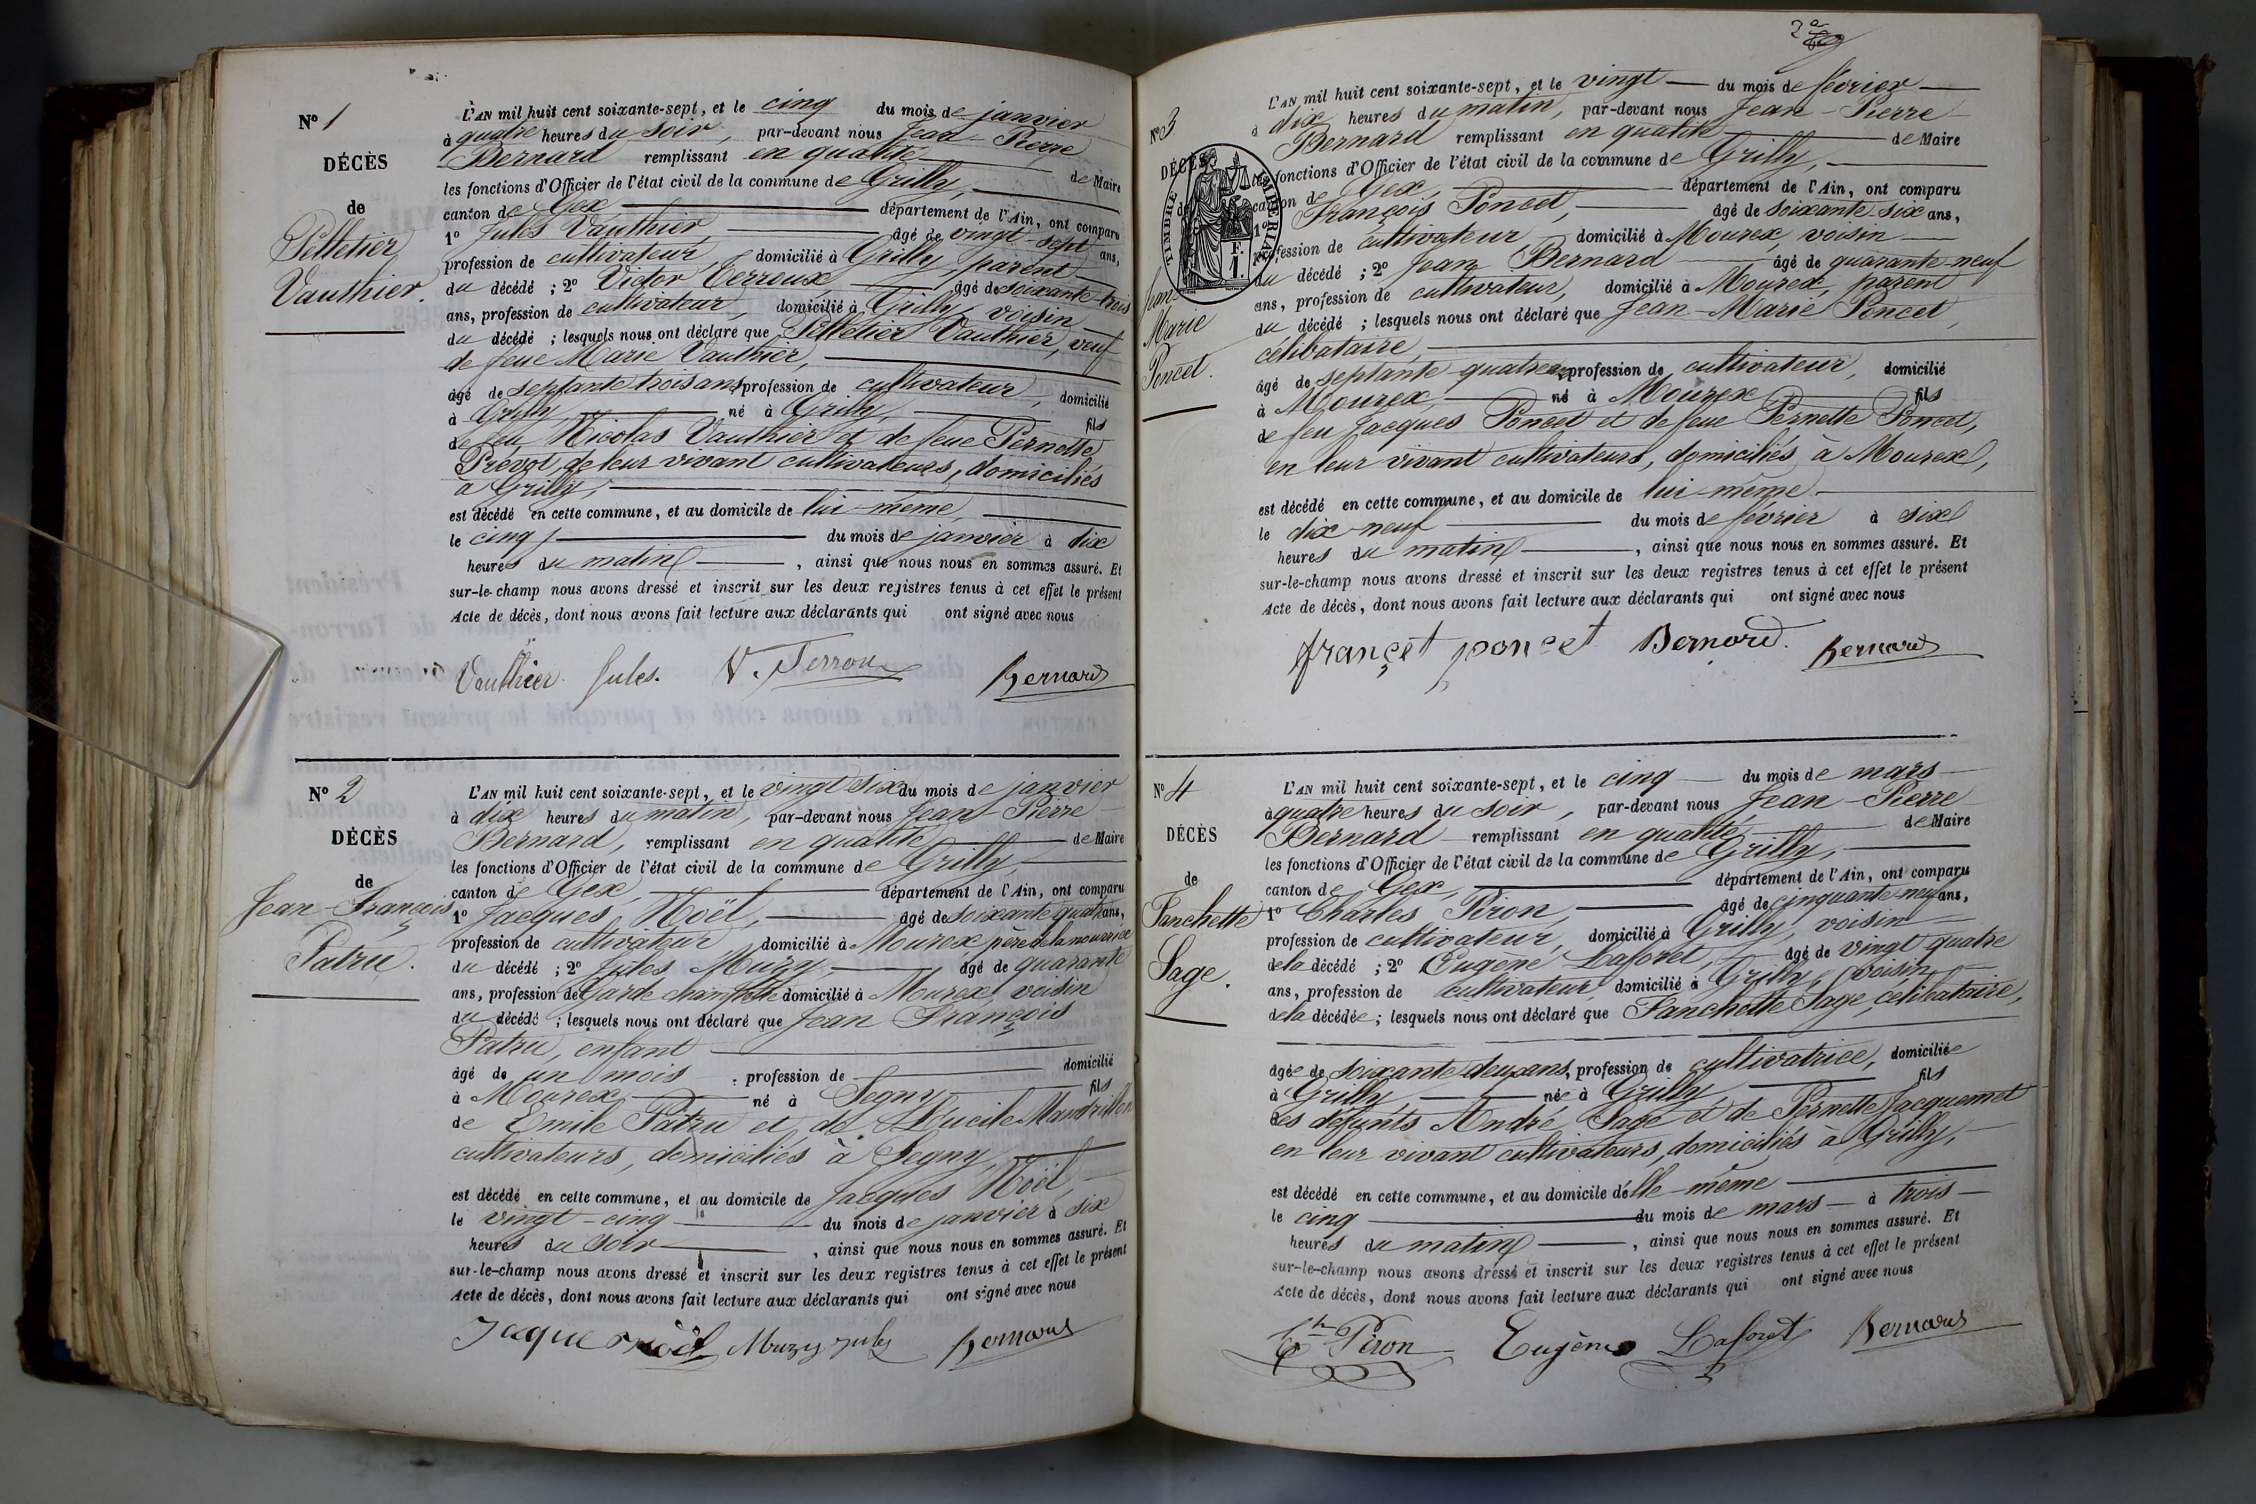 Nº 1
DÉCÈS
de
Pelletier
Vauthier.
L'AN mil huit cent soixante-sept, et le cinq du mois de janvier
à quatre heures du soir, par-devant nous Jean-Pierre
Bernard remplissant en qualité de Maire
les fonctions d'Officier de l'état civil de la commune de Grilly,
canton de Gex, département de l'Ain, ont comparu
1º Jules Vauthier âgé de vingt-sept ans,
profession de cultivateur, domicilié à Grilly, parent
du décédé ; 2º Victor Terroux âgé de soixante trois
ans, profession de cultivateur, domicilié à Grilly, voisin
du décédé ; lesquels nous ont déclaré que Pelletier Vauthier, veuf
de feue Marie Vauthier,
âgé de septante trois ans, profession de cultivateur, domicilié
à Grilly, né à Grilly, fils
de feu Nicolas Vauthier et de feue Pernette
Prévot, de leur vivant cultivateurs, domiciliés
à Grilly,
est décédé en cette commune, et au domicile de lui-même,
le cinq du mois de janvier à dix
heures du matin, ainsi que nous nous en sommes assuré. Et
sur-le-champ nous avons dressé et inscrit sur les deux registres tenus à cet effet le présent
Acte de décès, dont nous avons fait lecture aux déclarants qui ont signé avec nous
Vauthier Jules. V. Terroux Bernard
Nº 2
DÉCÈS
de
Jean-François
Patru.
L'AN mil huit cent soixante-sept, et le vingt six du mois de janvier
à dix heures du matin, par-devant nous Jean-Pierre
Bernard, remplissant en qualité de Maire
les fonctions d'Officier de l'état civil de la commune de Grilly,
canton de Gex, département de l'Ain, ont comparu
1º Jacques Noël, âgé de soixante quatre ans,
profession de cultivateur domicilié à Mourex, père de la nourrice
du décédé ; 2º Jules Muzy âgé de quarante
ans, profession de Garde champêtre domicilié à Mourex, voisin
du décédé ; lesquels nous ont déclaré que Jean François
Patru, enfant
âgé de un mois, profession de domicilié
à Mourex, né à Segny fils
de Emile Patru et de Lucile Mandrillon
cultivateurs, domiciliés à Segny,
est décédé en cette commune, et au domicile de Jacques Noël,
le vingt-cinq du mois de janvier à six
heures du soir, ainsi que nous nous en sommes assuré. Et
sur-le-champ nous avons dressé et inscrit sur les deux registres tenus à cet effet le présent
Acte de décès, dont nous avons fait lecture aux déclarants qui ont signé avec nous
Jacque noël Muzy july Bernard
Nº 3
DÉCÈS
Jean
Marie
Poncet.
TIMBRE IMPÉRIAL
F.
1.
L'AN mil huit cent soixante-sept, et le vingt du mois de février
à dix heures du matin, par-devant nous Jean-Pierre
Bernard remplissant en qualité de Maire
les fonctions d'Officier de l'état civil de la commune de Grilly,
canton de Gex, département de l'Ain, ont comparu
1º François Poncet, âgé de soixante-six ans,
profession de cultivateur domicilié à Mourex, voisin
du décédé ; 2º Jean Bernard âgé de quarante-neuf
ans, profession de cultivateur, domicilié à Mourex, parent
du décédé ; lesquels nous ont déclaré que Jean-Marie Poncet,
célibataire,
âgé de septante-quatre ans, profession de cultivateur, domicilié
à Mourex, né à Mourex fils
de feu Jacques Poncet et de feue Pernette Poncet,
en leur vivant cultivateurs, domiciliés à Mourex,
est décédé en cette commune, et au domicile de lui-même
le dix-neuf du mois de février à six
heures du matin, ainsi que nous nous en sommes assuré. Et
sur-le-champ nous avons dressé et inscrit sur les deux registres tenus à cet effet le présent
Acte de décès, dont nous avons fait lecture aux déclarants qui ont signé avec nous
françet poncet Bernard. Bernard
Nº 4
DÉCÈS
de
Fanchette
Sage.
L'AN mil huit cent soixante-sept, et le cinq du mois de mars
à quatre heures du soir, par-devant nous Jean-Pierre
Bernard remplissant en qualité de Maire
les fonctions d'Officier de l'état civil de la commune de Grilly,
canton de Gex, département de l'Ain, ont comparu
1º Charles Piron, âgé de cinquante-neuf ans,
profession de cultivateur, domicilié à Grilly, voisin
de la décédé ; 2º Eugène Laforêt, âgé de vingt quatre
ans, profession de cultivateur, domicilié à Grilly, voisin
de la décédée ; lesquels nous ont déclaré que Fanchette Sage, célibataire,
âgée de soixante-deux ans, profession de cultivatrice, domiciliée
à Grilly, née à Grilly, fils
des défunts André Sage et de Pernette Jacquemet
en leur vivant cultivateurs, domiciliés à Grilly,
est décédé en cette commune, et au domicile d'elle-même
le cinq du mois de mars à trois
heures du matin, ainsi que nous nous en sommes assuré. Et
sur-le-champ nous avons dressé et inscrit sur les deux registres tenus à cet effet le présent
Acte de décès, dont nous avons fait lecture aux déclarants qui ont signé avec nous
Ch Piron Eugène Laforêt Bernard